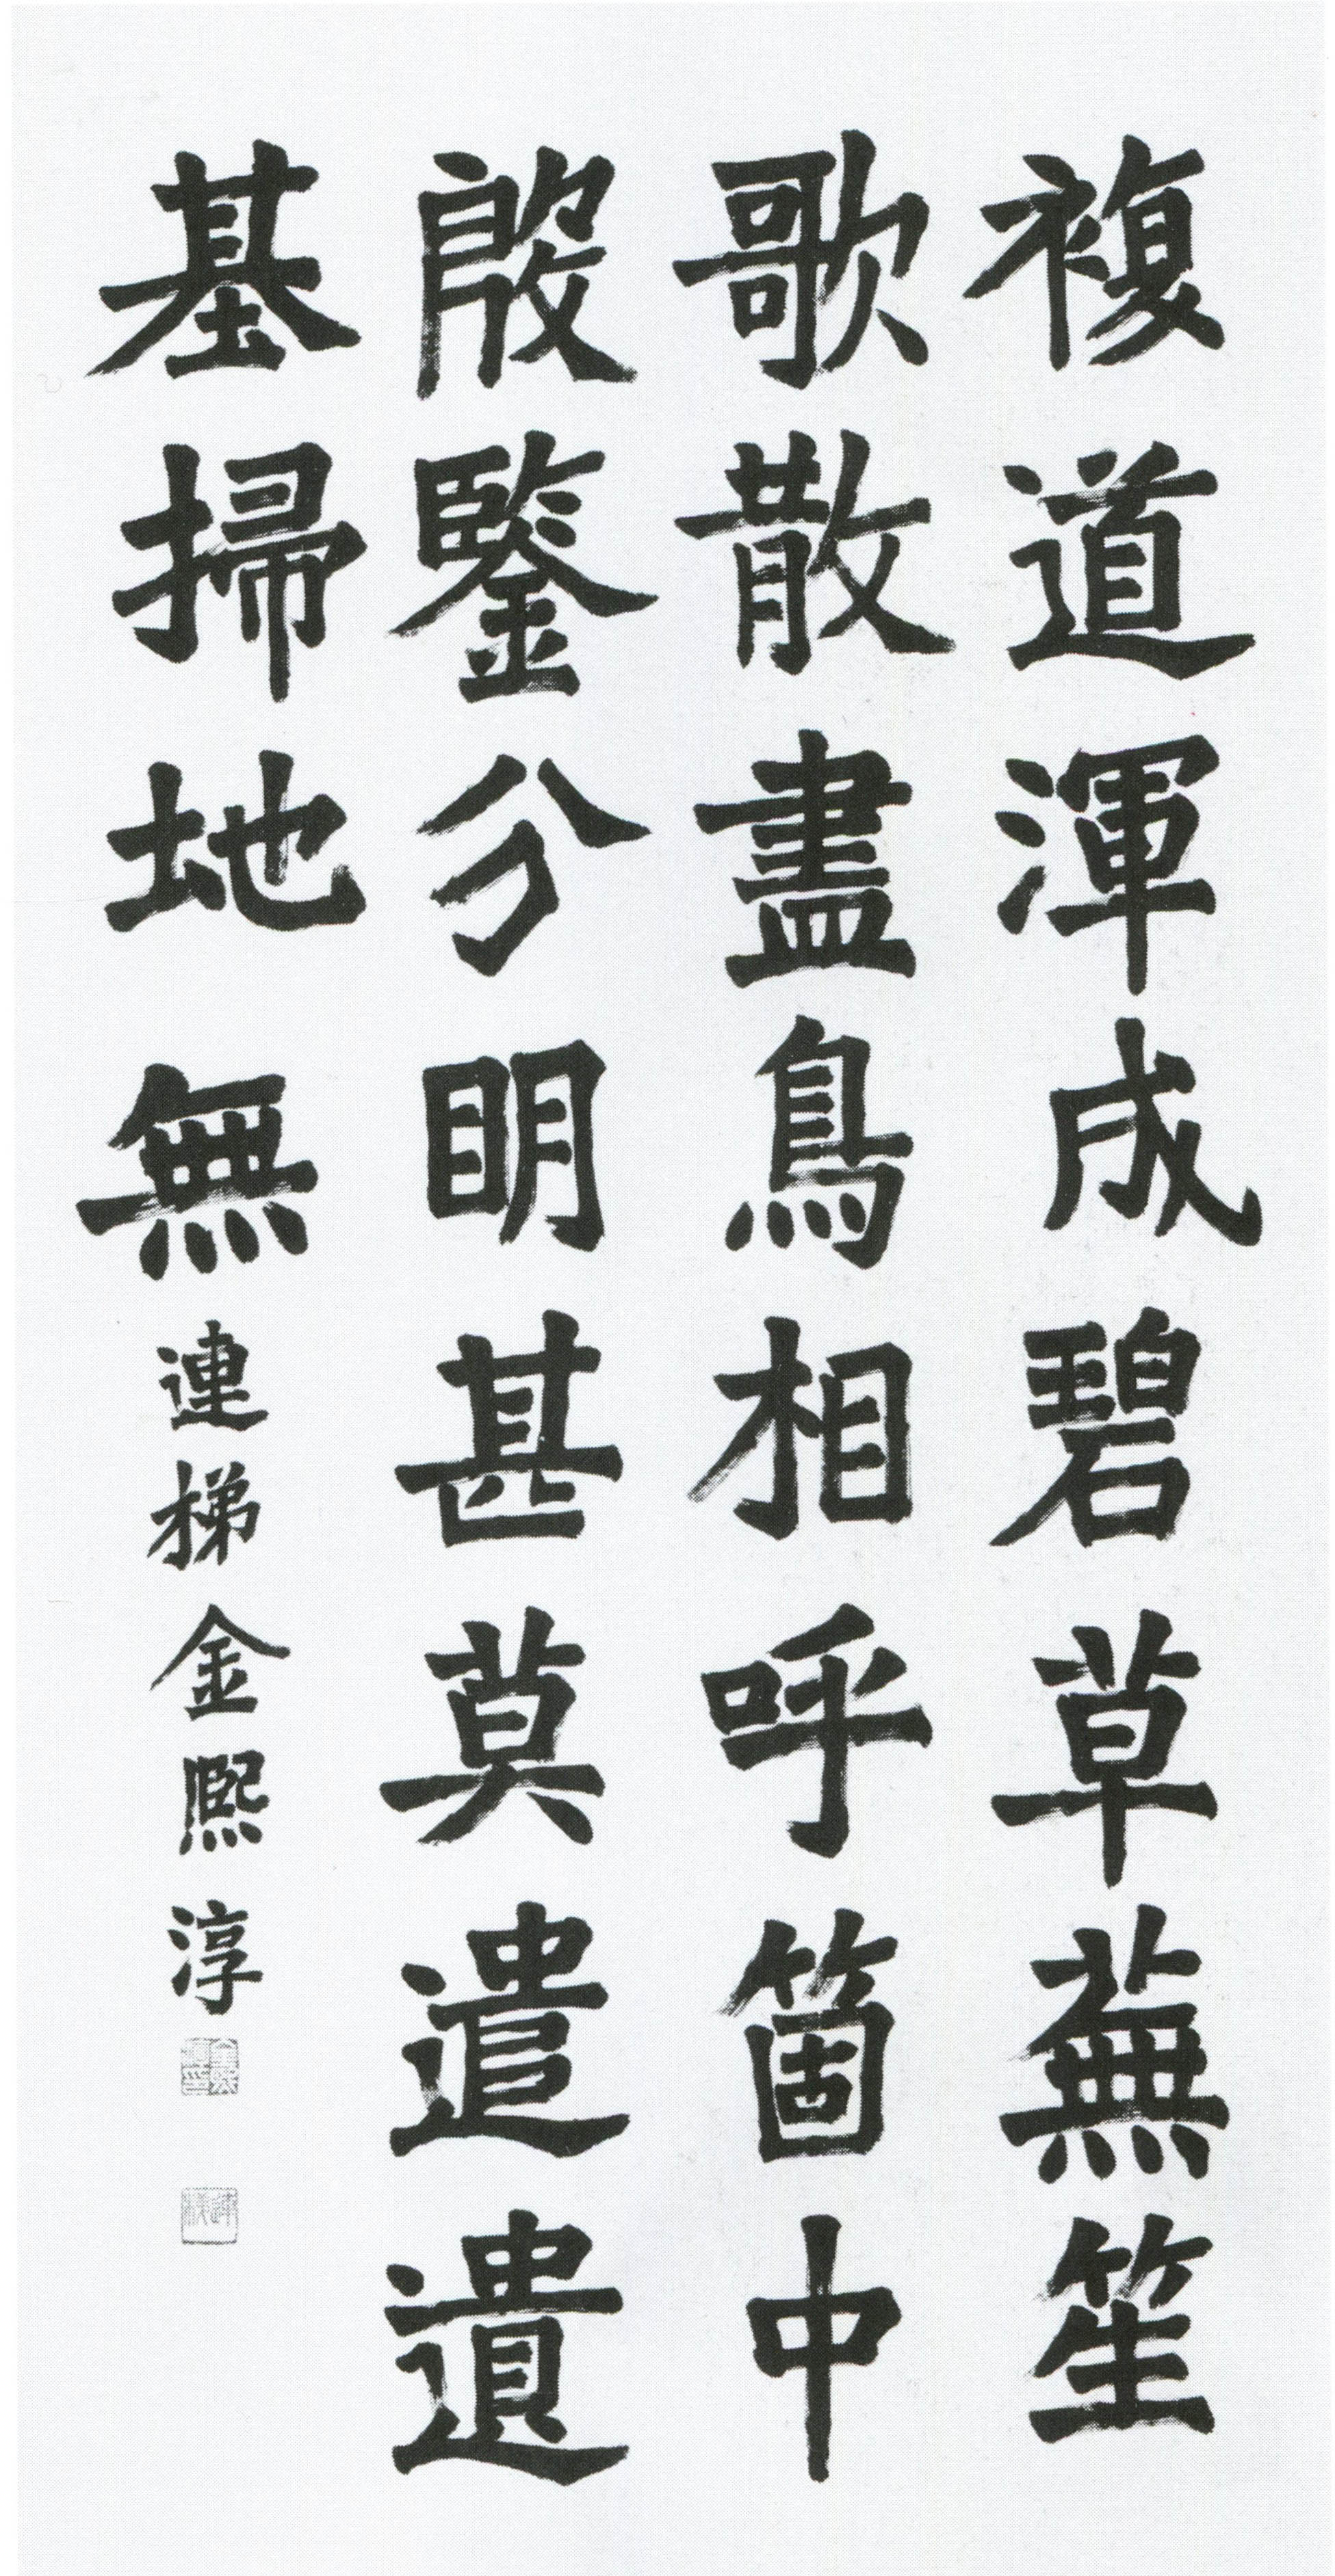 複道渾成碧草蕪笙
歌散盡鳥相呼箇中
殷鑒分明甚莫遣遺
基掃地無 連梯金熙淳